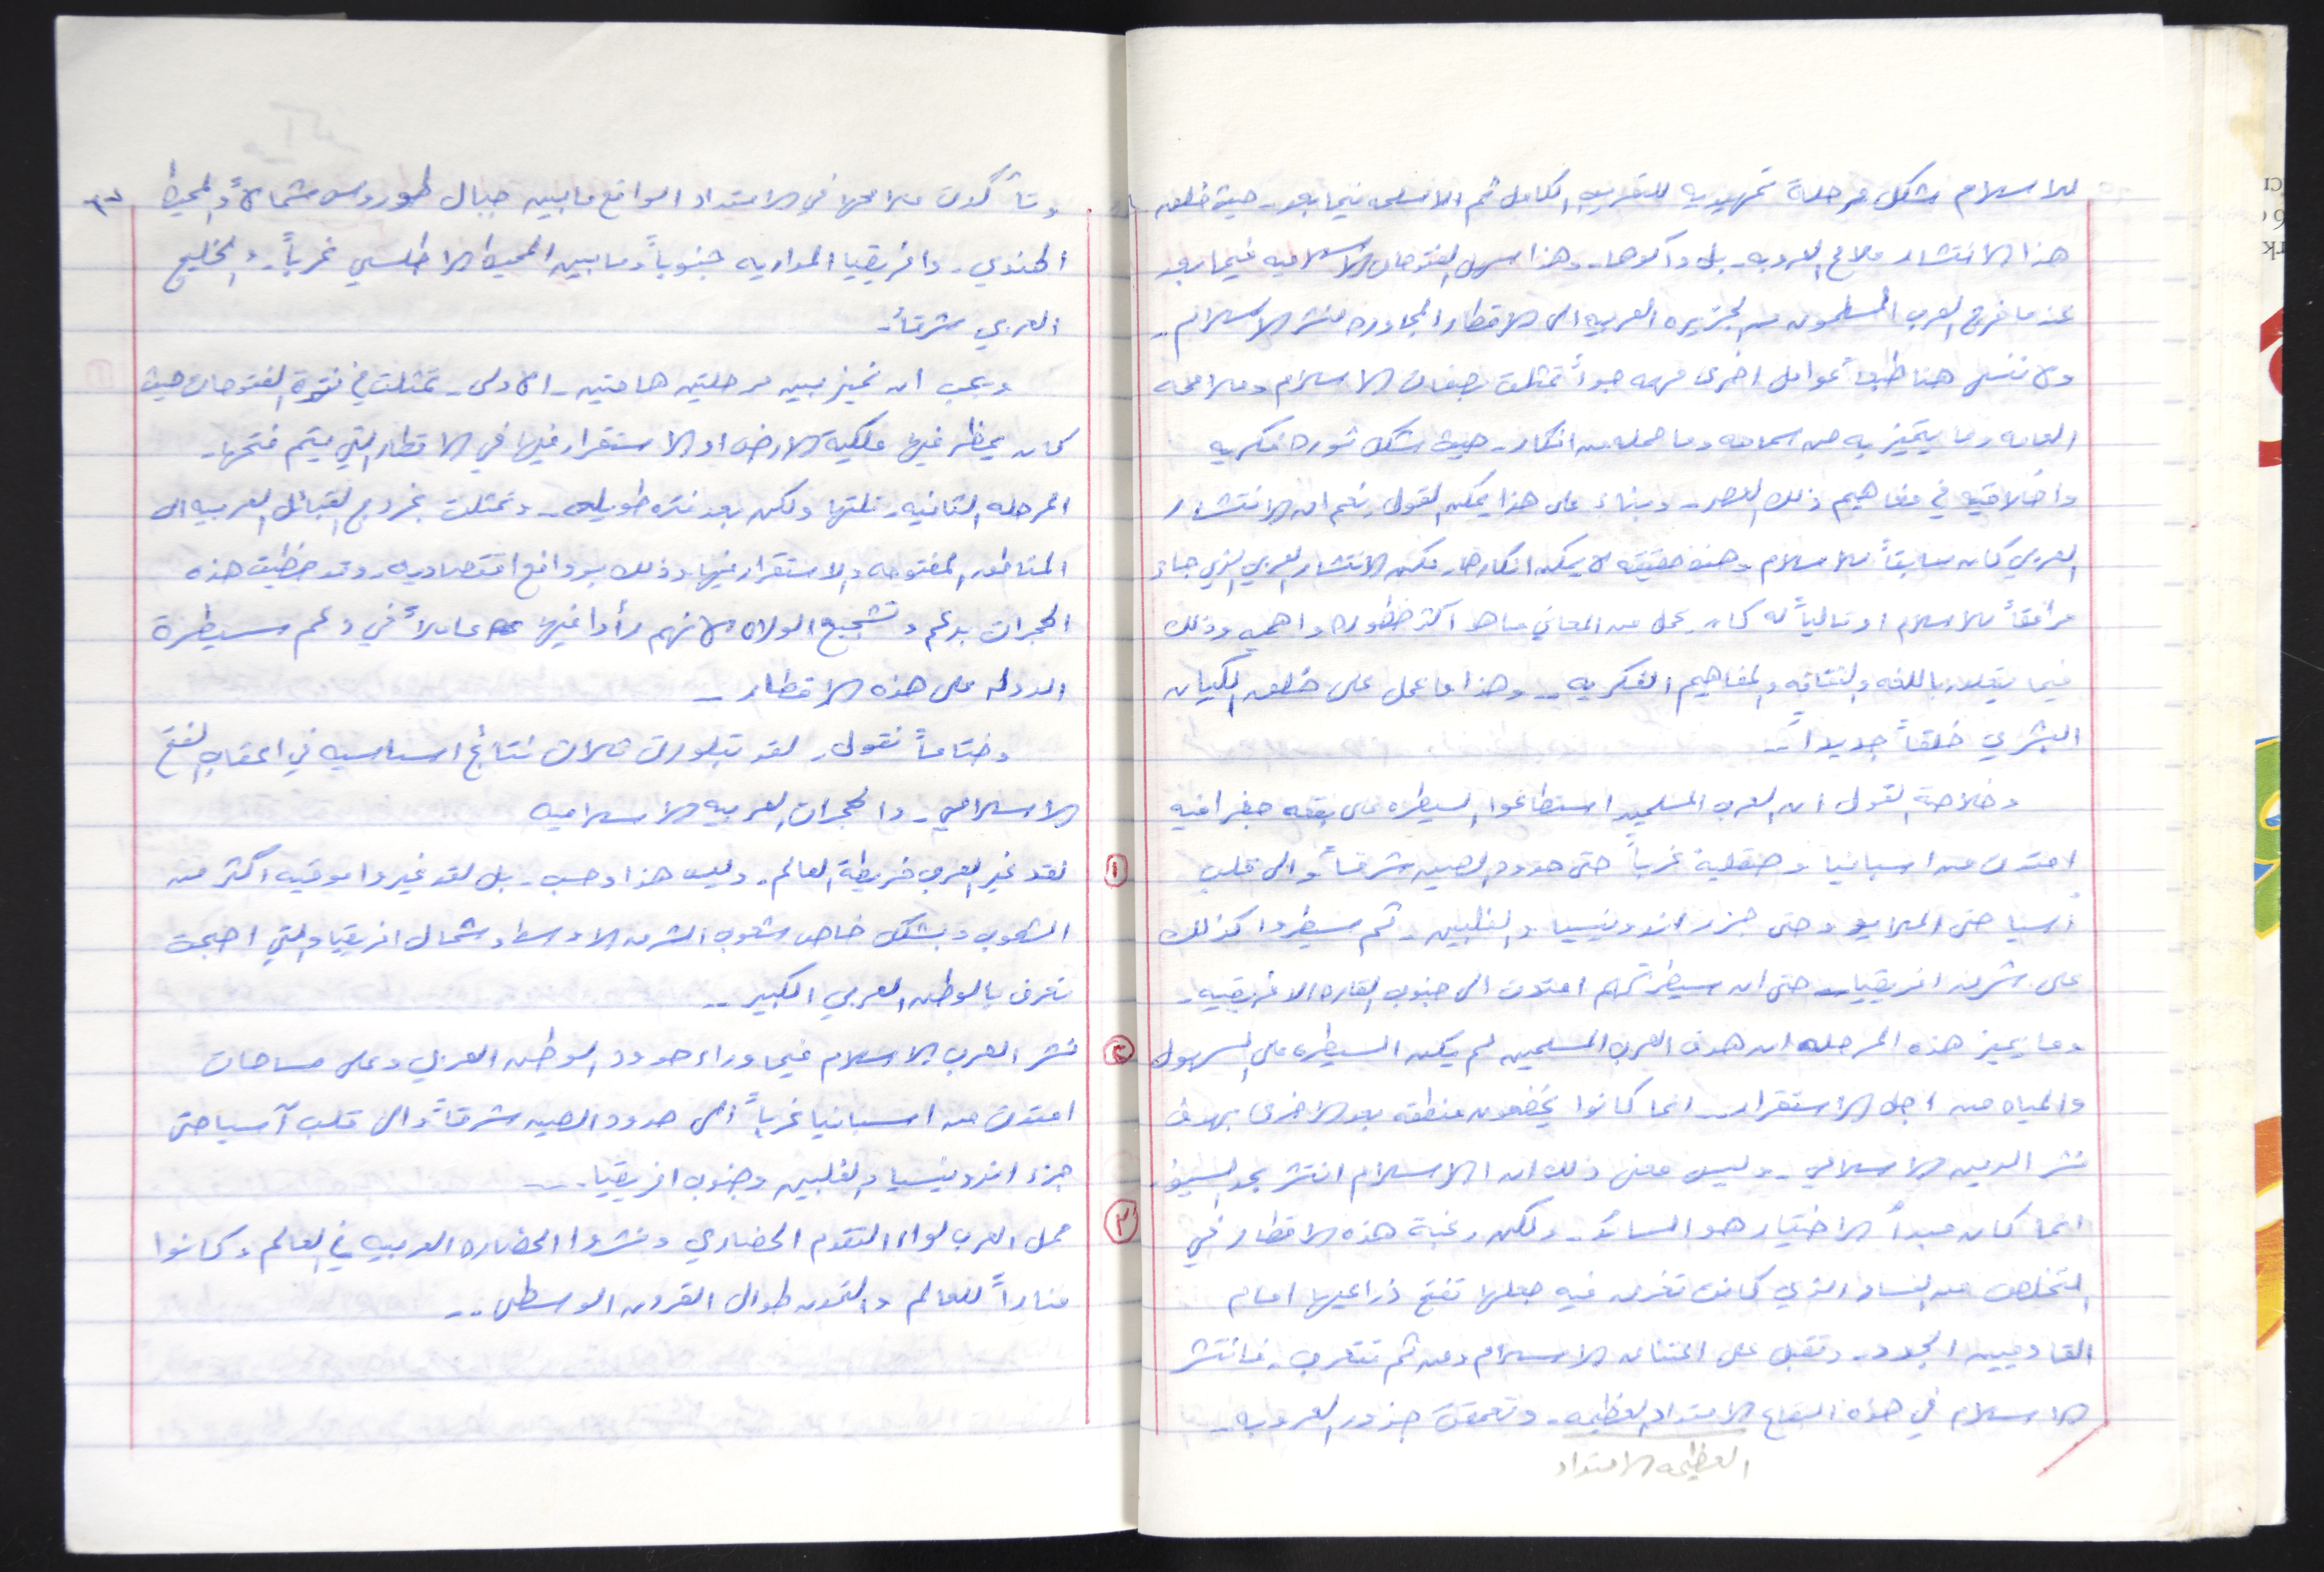 للاسلام شكل مرحلة تمهيديه للتعريب الكامل ثم الاسلمه فيما بعد - حيث خلق
هذا الانتشار ملامح العروبه - بل وأكدها - وهذا سهل الفتوحات الاسلاميه فيما بعد
عندما خرج العرب المسلمون من الجزيره العربيه الى الاقطار المجاوره لنشر الاسلام -
ولا ننسى هنا طبعاً عوامل اخرى مهمه جداً تمثلت بصفات الاسلام وملامحه
العامه وما يتميز به من سماحه وما حمله من افكار - حيث شكل ثوره فكريه
واخلاقيه في مفاهيم ذلك العصر - وبناء على هذا يمكن القول - نعم ان الانتشار
العربي كان سابقاً للاسلام - وهذه حقيقه لا يمكن انكارها - لكن الانتشار العربي الذي جاء
مرافقاً للاسلام او تالياً له كان يحمل من المعاني ما هو اكثر خطوره واهميه وذلك
فيما يتعلق باللغه والثقافه والمفاهيم الفكريه -- وهذا ما عمل على خلق الكيان
البشري خلقاً جديداً --
وخلاصة القول ان العرب المسلمين استطاعوا السيطره على بقعه جغرافيه
امتدت من اسبانيا وصقلية غرباً حتى حدود الصين شرقاً والى قلب
آسيا حتى الملايو وحتى جزر اندونيسيا والفلبين - ثم سيطروا كذلك
على شرق افريقيا - حتى ان سيطرتهم امتدت الى جنوب القاره الافريقيه -
وما يميز هذه المرحله ان هدف العرب المسلمين لم يكن السيطره على السهول
والمياه من اجل الاستقرار -- انما كانوا يخضعون منطقه بعد الاخرى بهدف
نشر الدين الاسلامي - وليس معنى ذلك ان الاسلام انتشر بحد السيف -
انما كان مبدأ الاختيار هو السائد - ولكن رغبة هذه الاقطار في
التخلص من الفساد الذي كانت تغرق فيه جعلها تفتح ذراعيها امام
القادمين الجدد - وتقبل على اعتناق الاسلام ومن ثم تتعرب - فانتشر
الاسلام في هذه البقاع الامتداد العظيمه - وتعمقت جذور العروبه -
العظيمه الامتداد
وتأكدت ملامحها في الامتداد الواقع ما بين جبال طوروس شمالاً والمحيط
الهندي - وافريقيا المداريه جنوباً وما بين المحيط الاطلسي غرباً - والخليج
العربي شرقاً -
ويجب ان نميز بين مرحلتين هامتين - الاولى - تمثلت في فترة الفتوحات حيث
كان يحظر فيها ملكية الارض او الاستقرار فيها في الاقطار التي يتم فتحها -
المرحله الثانيه - تلتها ولكن بعد فتره طويله - وتمثلت بخروج القبائل العربيه الى
المناطق المفتوحه والاستقرار فيها وذلك بدوافع اقتصاديه - وقد حظيت هذه
الهجرات بدعم وتشجيع الولاه لانهم رأوا فيها عاملاً في دعم سيطرة
الدوله على هذه الاقطار --
وختاماً نقول - لقد تبلورت ثلاث نتائج اساسيه في اعقاب الفتح
الاسلامي - والهجرات العربيه الاسلاميه
١ لقد غير العرب خريطة العالم - وليس هذا وحسب - بل لقد غيروا موقيه اكثر من
الشعوب وبشكل خاص شعوب الشرق الاوسط وشمال افريقيا والتي اصبحت
تعرف بالوطن العربي الكبير --
٢ نشر العرب الاسلام فيما وراء حدود الوطن العربي وعلى مساحات
امتدت من اسبانيا غرباً الى حدود الصين شرقاً والى قلب آسيا حتى
جزء اندونيسيا والفلبين وجنوب افريقيا ---
٣ حمل العرب لواء التقدم الحضاري ونشروا الحضاره العربيه في العالم وكانوا
مناراً للعالم والتمدن طوال القرون الوسطى --